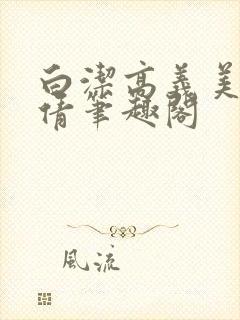 白潔高義美
倩筆趣閣
風流